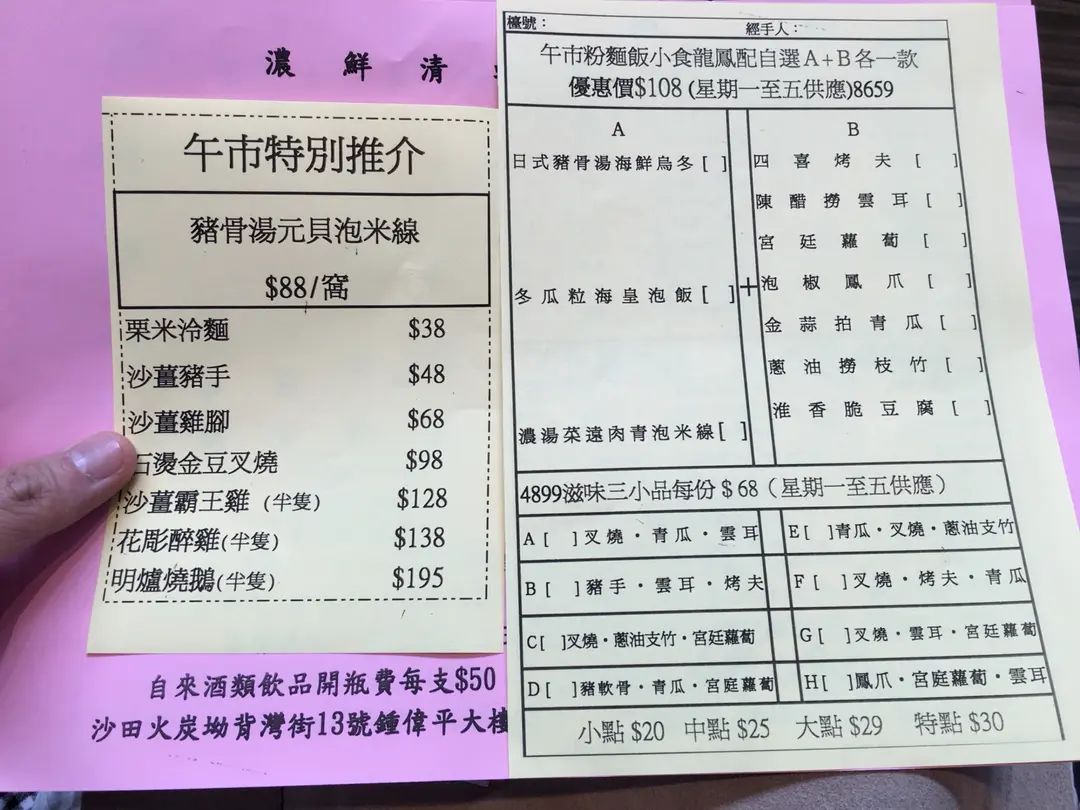 濃鮮清
午市特別推介
豬骨湯元貝泡米線
$88/窩
栗米泠麵 $38
沙薑豬手 $48
沙薑雞腳 $68
石燙金豆叉燒 $98
沙薑霸王雞 (半隻) $128
花彫醉雞(半隻) $138
明爐燒鵝(半隻) $195
自來酒類飲品開瓶費每支$50
沙田火炭坳背灣街13號鍾偉平大樓
檯號： 經手人：
午市粉麵飯小食龍鳳配自選A+B各一款
優惠價$108 (星期一至五供應)8659
A
日式豬骨湯海鮮烏冬[ ]
冬瓜粒海皇泡飯[ ]
濃湯菜遠肉青泡米線[ ]
+
B
四喜烤夫[ ]
陳醋撈雲耳[ ]
宮廷蘿蔔[ ]
泡椒鳳爪[ ]
金蒜拍青瓜[ ]
蔥油撈枝竹[ ]
淮香脆豆腐[ ]
4899滋味三小品每份＄68（星期一至五供應）
A[ ]叉燒・青瓜・雲耳 E[ ]青瓜・叉燒・蔥油支竹
B[ ]豬手・雲耳・烤夫 F[ ]叉燒・烤夫・青瓜
C[ ]叉燒・蔥油支竹・宮廷蘿蔔 G[ ]叉燒・雲耳・宮廷蘿蔔
D[ ]豬軟骨・青瓜・宮庭蘿蔔 H[ ]鳳爪・宮庭蘿蔔・雲耳
小點 $20 中點 $25 大點 $29 特點 $30